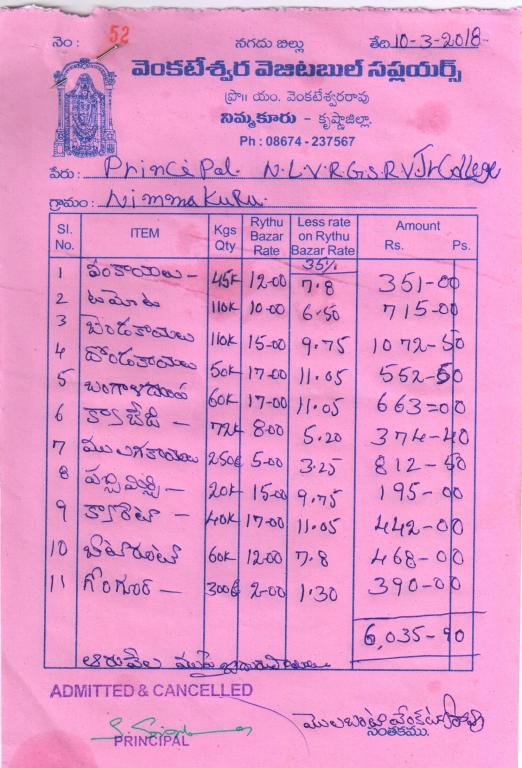 నెం : 52 నగదు బిల్లు తేది 10-3-2018
వెంకటేశ్వర వెజిటబుల్ సప్లయర్స్
ప్రొ॥ యం. వెంకటేశ్వరరావు
నిమ్మకూరు - కృష్ణాజిల్లా.
Ph : 08674 - 237567
పేరు : Principal N.L.V.R.G.S.R.V Jr College
గ్రామం : Nimmakuru.
Sl. No. ITEM Kgs Qty Rythu Bazar Rate Less rate on Rythu Bazar Rate Amount Rs. Ps.
35%
1 వంకాయలు - 45K 12-00 7.8 351-00
2 టమోట 110K 10-00 6.50 715-00
3 బెండకాయలు 110K 15-00 9.75 1072-50
4 దొండకాయలు 50K 17-00 11.05 552-50
5 బంగాళదుంప 60K 17-00 11.05 663=00
6 క్యాబేజి - 72K 8-00 5.20 374-40
7 ములగకాయలు 250 5-00 3.25 812-50
8 పచ్చిమిర్చి - 20K 15-00 9.75 195-00
9 క్యారెట్ - 40K 17-00 11.05 442-00
10 బీట్రూట్ 60K 12-00 7.8 468-00
11 గోంగూర - 300 2-00 1.30 390-00
6,035-90
ఆరువేల
ADMITTED & CANCELLED
PRINCIPAL
సంతకము.